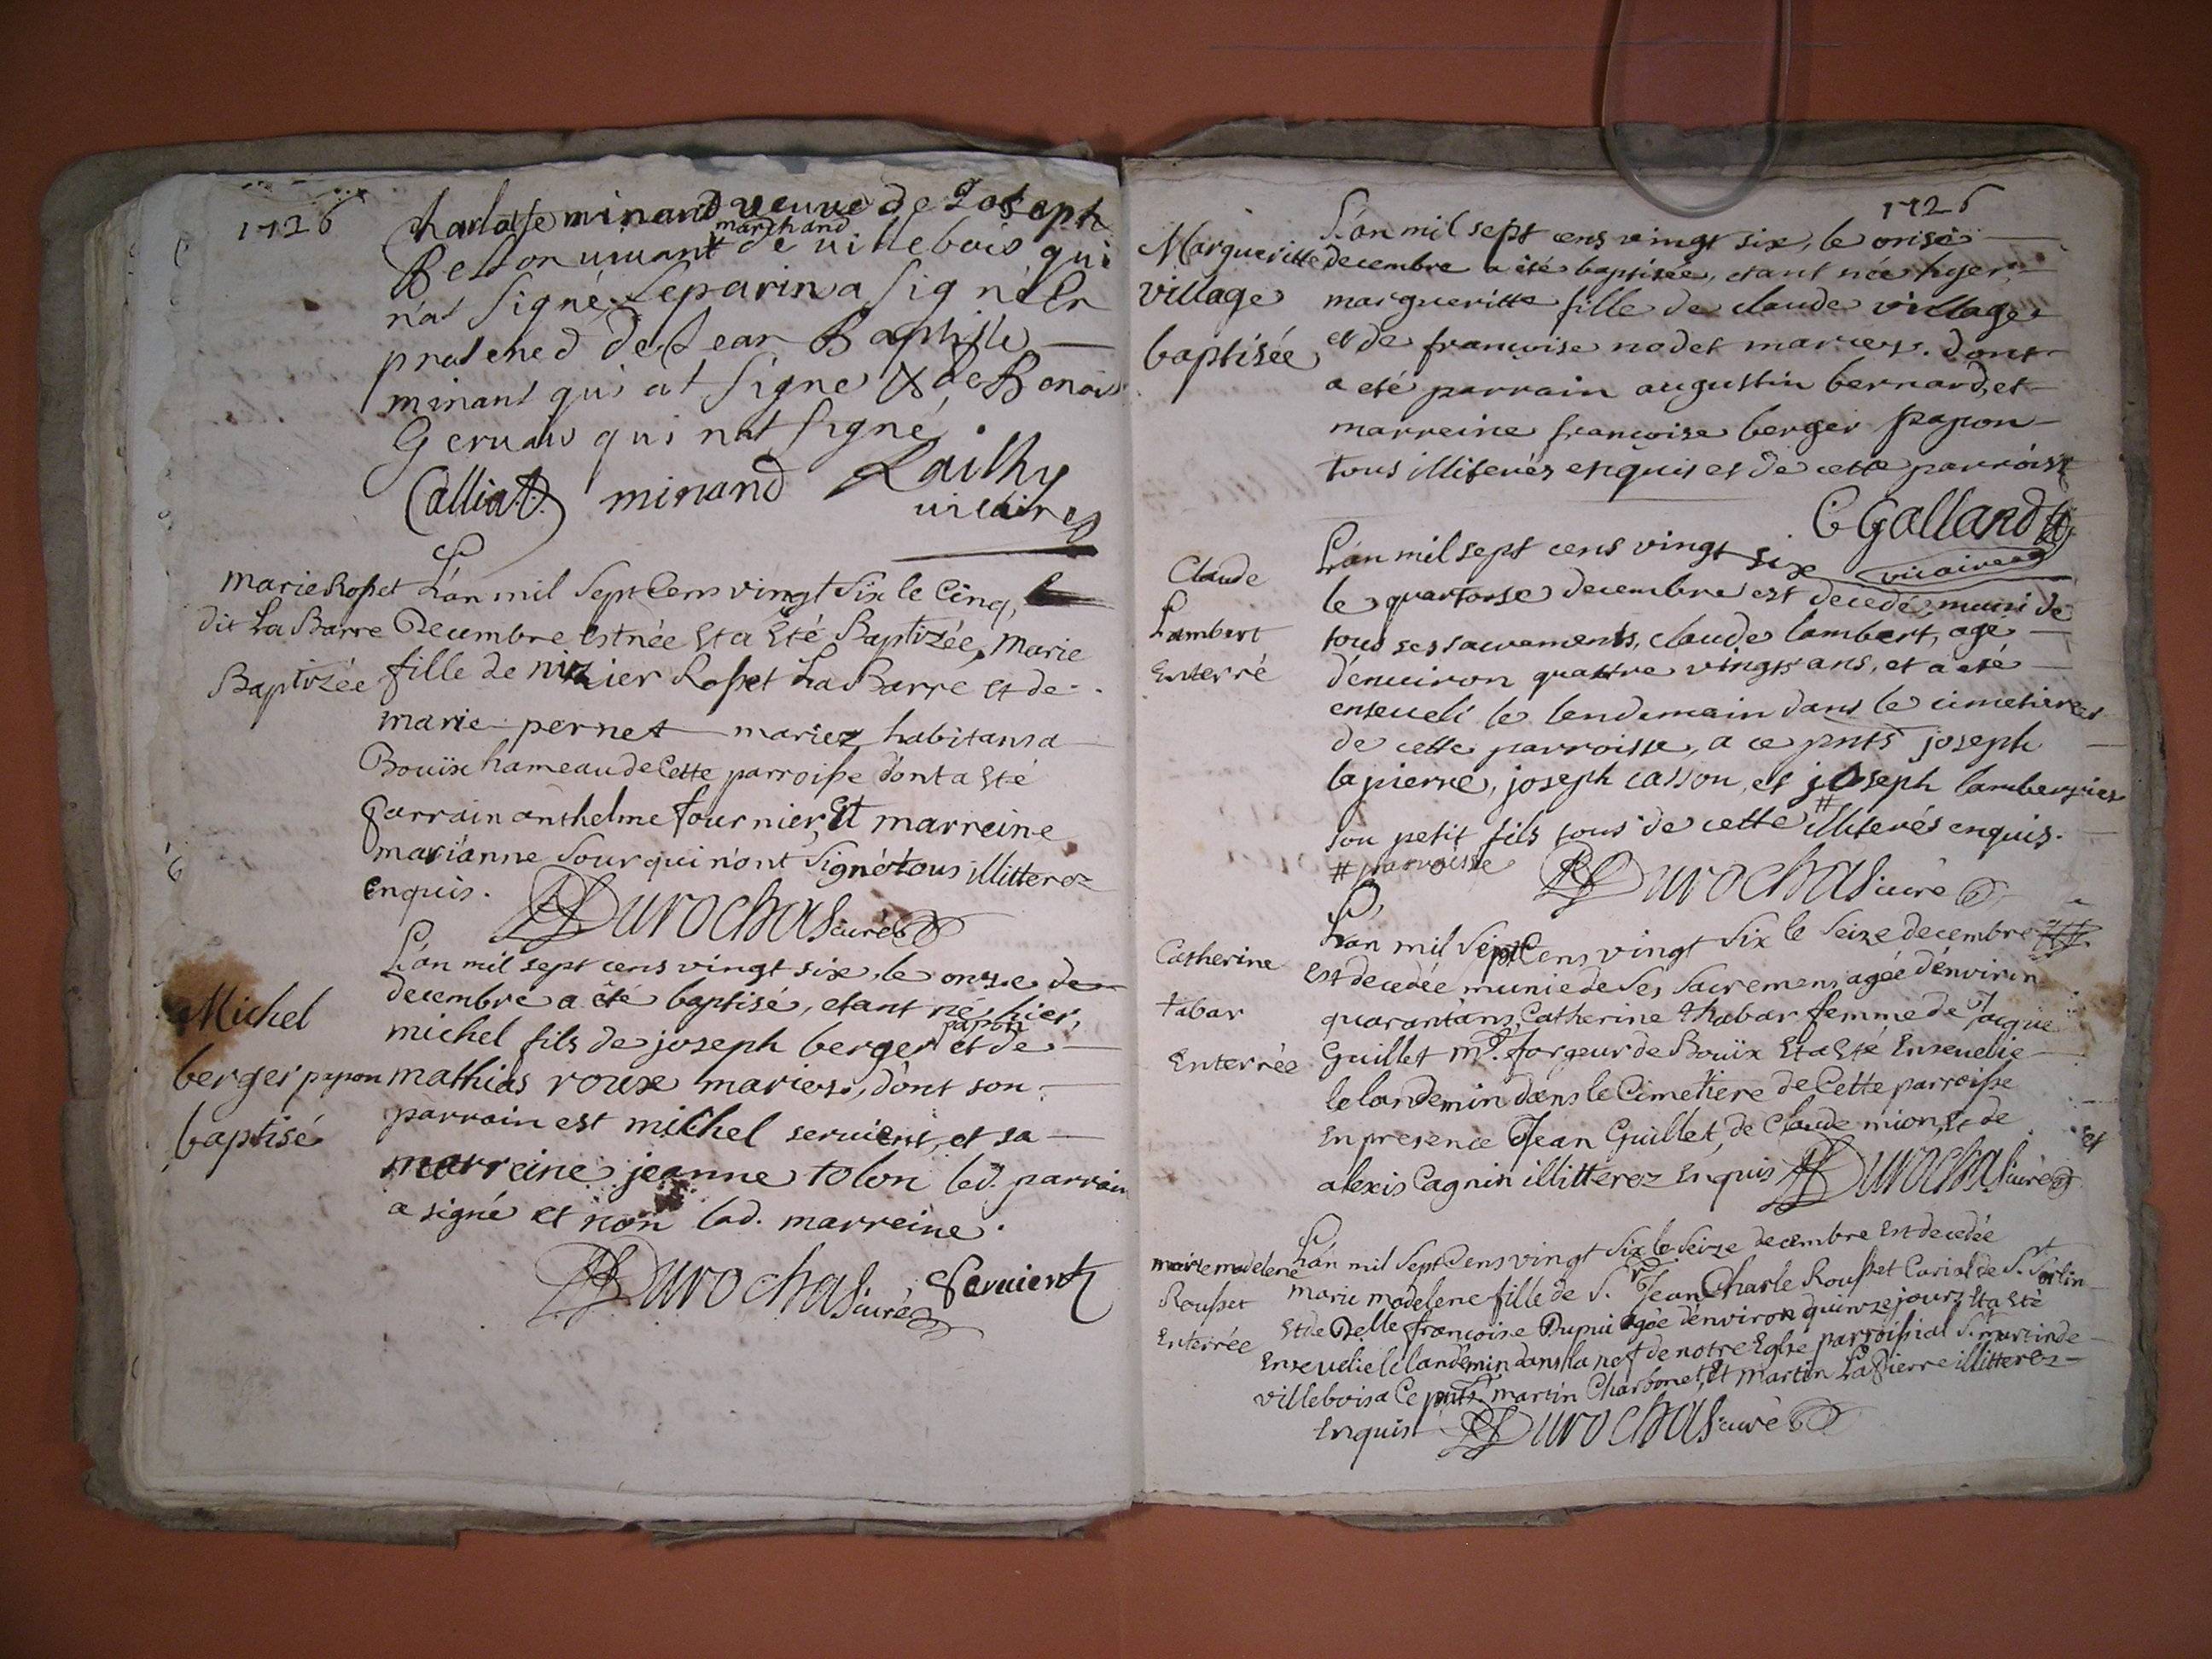 1726
Charlotte minand veuve de Joseph
marchand
Besson vivant de villebois qui
n'at signé. Leparin a signé En
presence de Jean Baptiste
minant qui at signé & de Benois
Gervais qui nat signé.
Calliat minand Lailhy
vicaire
marie Rosset
dit La Barre
Baptizée
L'an mil sept Cens vingt six le Cinq
Decembre est née Et a Eté Baptizée, marie
fille de nizier Rosset La Barre et de
marie pernet mariez habitans a
Bouïx hameau de Cette parroisse dont a Eté
parrain anthelme fournier, Et marreine
marianne Sour qui n'ont signé tous illitterez
enquis. Durochas curé
Michel
berger papon
baptisé
L'an mil sept cens vingt six, le onze de
decembre a été baptisé, etant né hier,
papon
michel fils de joseph berger et de
mathias roux mariez, dont son
parrain est michel servient, et sa
marreine jeanne tolon led. parrain
a signé et non lad. marreine.
Durochas curé Servient
1726
Margueritte
village
baptisée
L'an mil sept cens vingt six, le onse
decembre a été baptisée, etant née hyer
margueritte fille de claude village
et de francoise nodet mariez. dont
a eté parrain augustin bernard, et
marreine francoise berger papon
tous illiterés enquis et de cette parroisse
C Galland
vicaire
Claude
Lambert
Enterré
L'an mil sept cens vingt six
le quartorse decembre est decedé, muni de
tous ses sacrements, claude lambert, agé
d'enuiron quattre vingts ans, et a eté
enseueli le lendemain dans le cimetiere
de cette parroisse, a ce pnts joseph
lapierre, joseph casson, et joseph lambert
son petit fils tous de cette # illiterés enquis.
# parroisse Durochas curé
Catherine
tabar
Enterrée
L'an mil sept Cens vingt six le seize decembre
Est decedée munie de ses sacremens agée d'environ
quarant'ans, Catherine thabar femme de Jacque
Guillet md. forgeur de Bouïx Et a Eté Enseuelie
le landemin dans le Cimetiere de Cette parroisse
En presence Jean Guillet, de Claude mion, Et de
alexis Cagnin illitterez Enquis Durochas curé
marie madelene
Rousset
Enterrée
L'an mil sept Cens vingt six le seize decembre Est decedée
marie madelene fille de Sr. Jean Charle Rousset Curial de St. Sorlin
Et de Delle francoise Dupui agée d'environ quinze jours Et a Eté
Enseuelie le landemin dans la nef de notre Eglise parroissial St. martin de
villebois a Ce pnts. martin Charbonet, Et martin La Pierre illitterez
Enquis Durochas curé